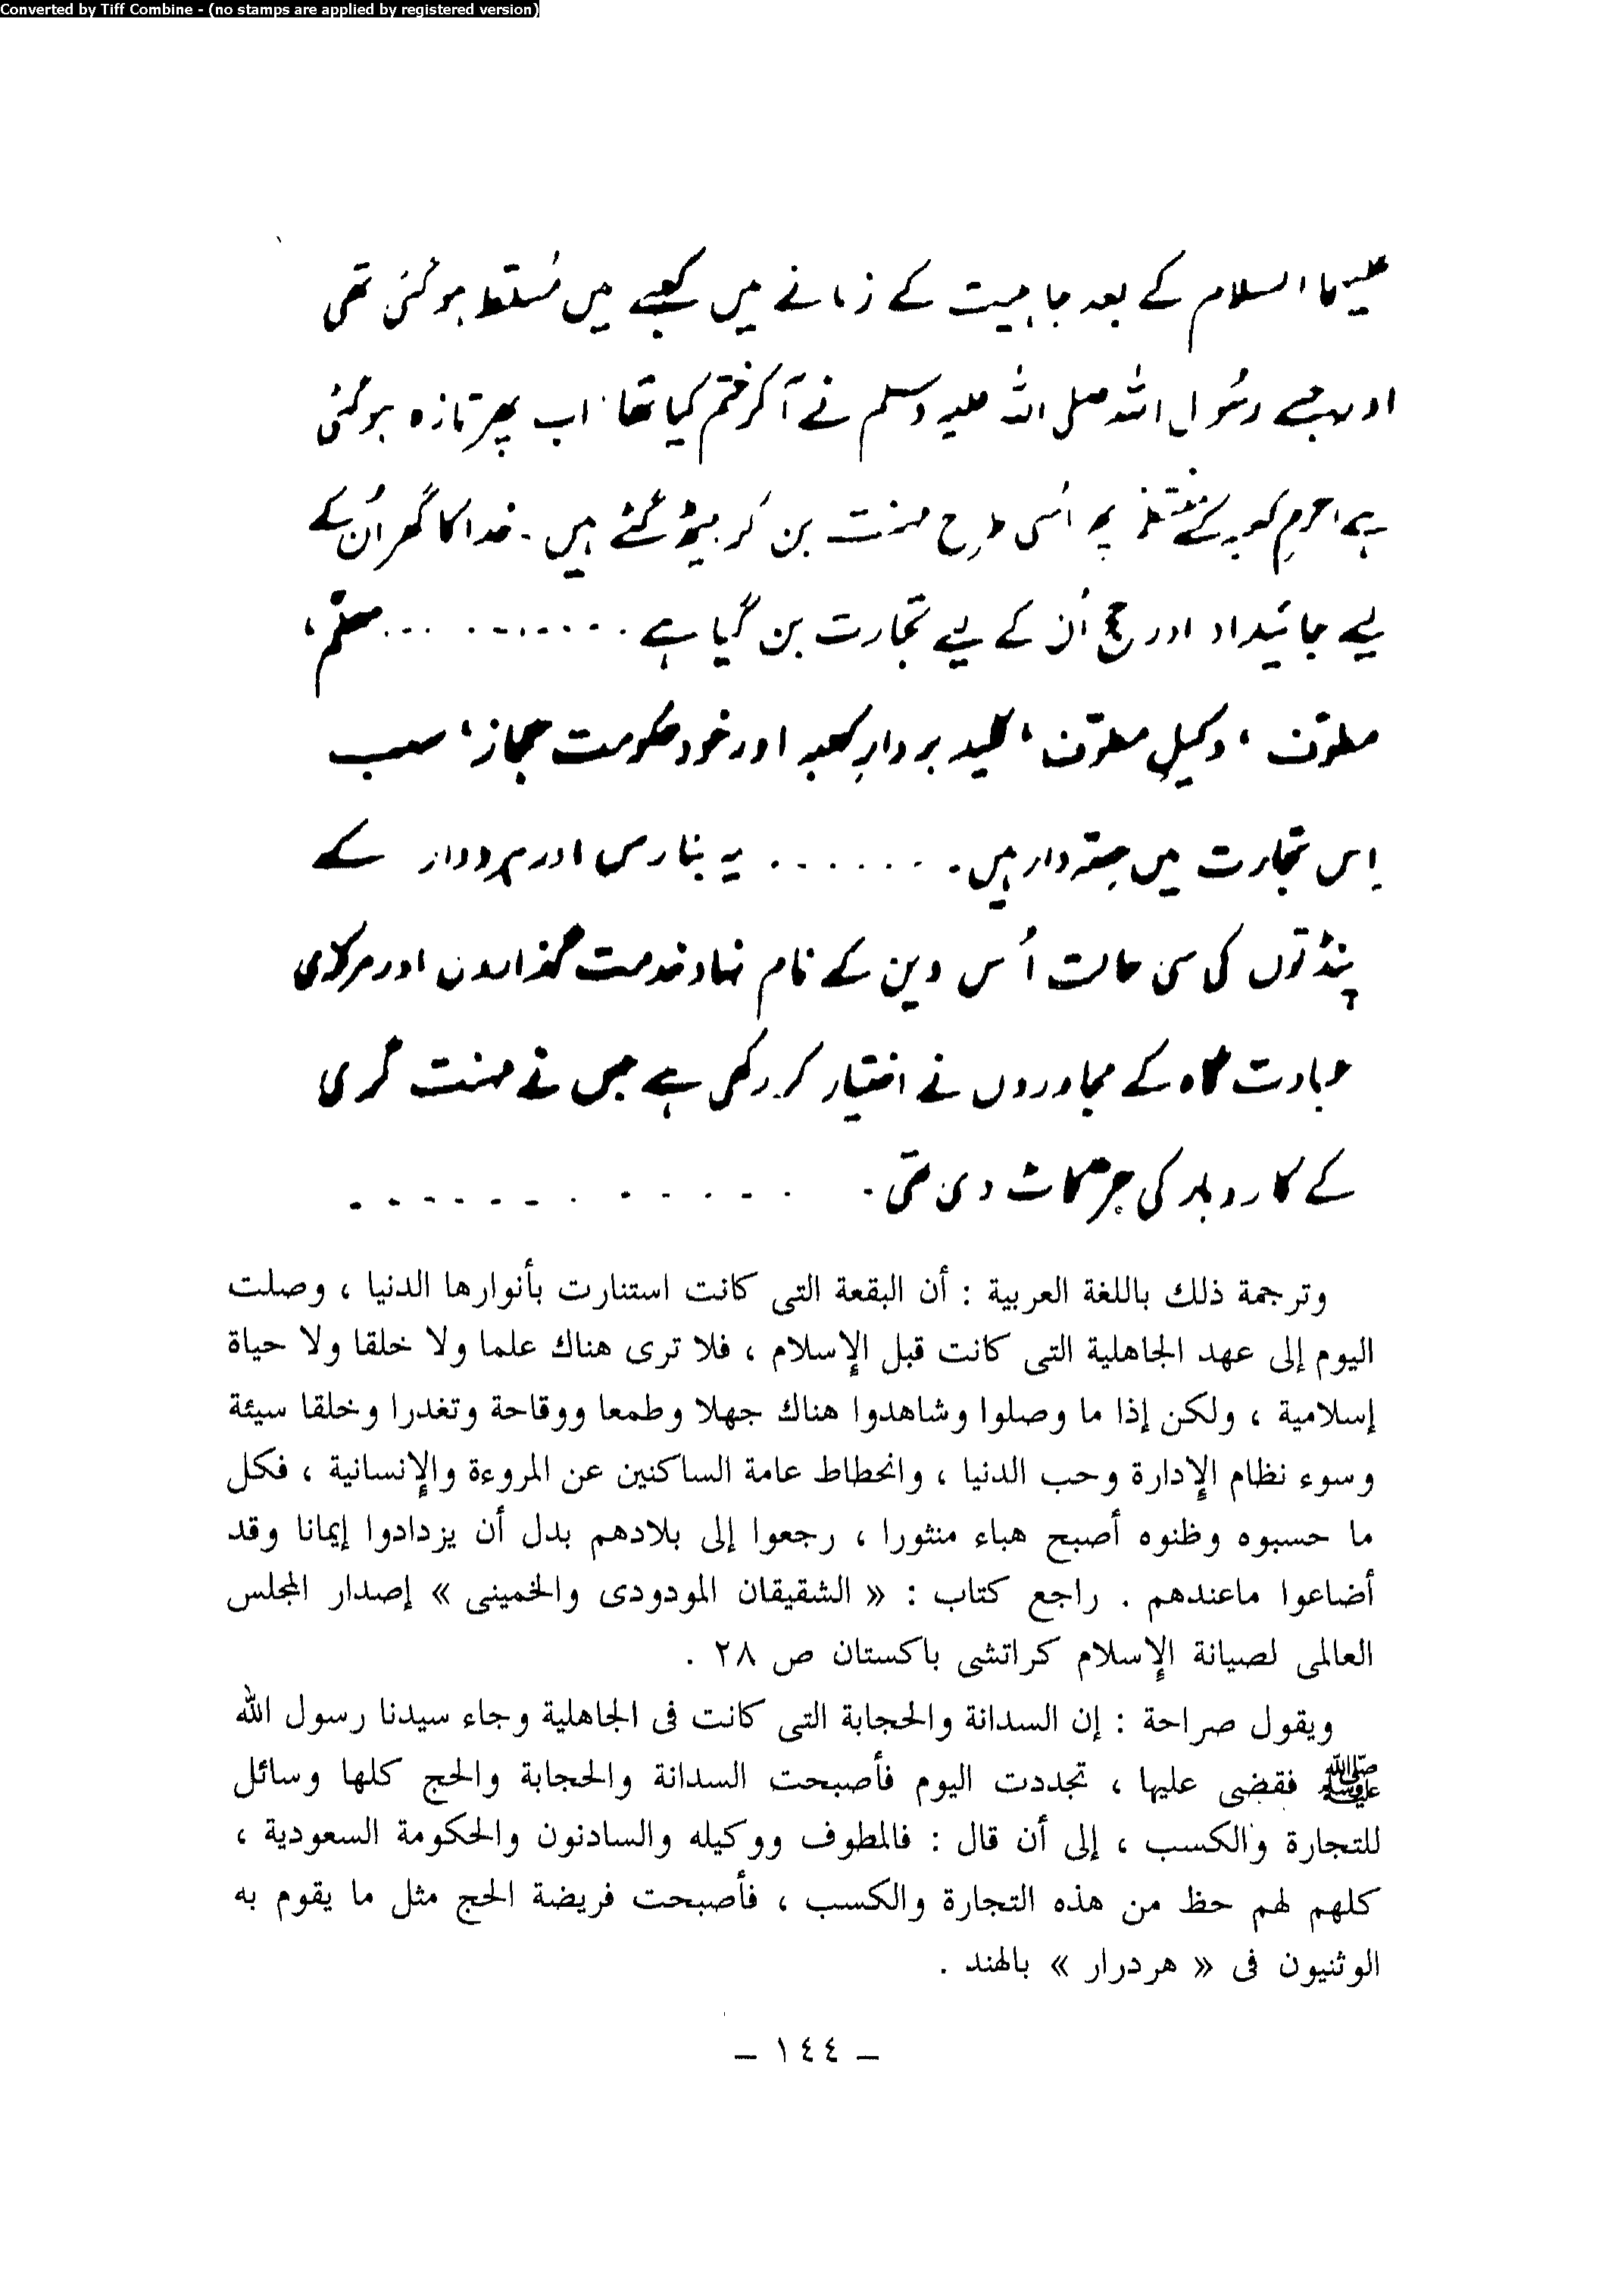 Converted by Tiff Combine - (no stamps are applied by registered version)
علیہما السلام کے بعد جاہلیت کے زمانے میں کعبے میں مُسلّط ہوگئی تھی
اور جسے رسُول اللہ صلی اللہ علیہ وسلم نے آکر ختم کیا تھا اب پھر تازہ ہوگئی
ہے، حرمِ کعبہ کے منتظم پھر اُسی طرح مہنت بن کر بیٹھ گئے ہیں۔ خدا کا گھر اُن کے
لیے جائیداد اور حج اُن کے لیے تجارت بن گیا ہے . . . . . . . . . . . معلّم،
مطوّف، وکیلِ مطوّف، کلید بردارِ کعبہ اور خود حکومت حجاز، سب
اِس تجارت میں حصّہ دار ہیں۔ . . . . . . یہ بنارس اور ہردوار کے
پنڈتوں کی سی حالت اُس دین کے نام نہاد خدمت گذاروں اور مرکزی
عبادت گاہ کے مجاوروں نے اختیار کر رکھی ہے جس نے مہنت گری
کے کاروبار کی جڑ کاٹ دی تھی۔ . . . . . . . . . . . . .
وترجمة ذلك باللغة العربية : أن البقعة التى كانت استنارت بأنوارها الدنيا ، وصلت
اليوم إلى عهد الجاهلية التى كانت قبل الإسلام ، فلا ترى هناك علما ولا خلقا ولا حياة
إسلامية ، ولكن إذا ما وصلوا وشاهدوا هناك جهلا وطمعا ووقاحة وتغدرا وخلقا سيئة
وسوء نظام الإدارة وحب الدنيا ، وانحطاط عامة الساكنين عن المروءة والإنسانية ، فكل
ما حسبوه وظنوه أصبح هباء منثورا ، رجعوا إلى بلادهم بدل أن يزدادوا إيمانا وقد
أضاعوا ماعندهم . راجع كتاب : « الشقيقان المودودى والخمينى » إصدار المجلس
العالمى لصيانة الإسلام كراتشى باكستان ص ٢٨ .
ويقول صراحة : إن السدانة والحجابة التى كانت فى الجاهلية وجاء سيدنا رسول الله
ﷺ فقضى عليها ، تجددت اليوم فأصبحت السدانة والحجابة والحج كلها وسائل
للتجارة والكسب ، إلى أن قال : فالمطوف ووكيله والسادنون والحكومة السعودية ،
كلهم لهم حظ من هذه التجارة والكسب ، فأصبحت فريضة الحج مثل ما يقوم به
الوثنيون فى « هردرار » بالهند .
– ١٤٤ –